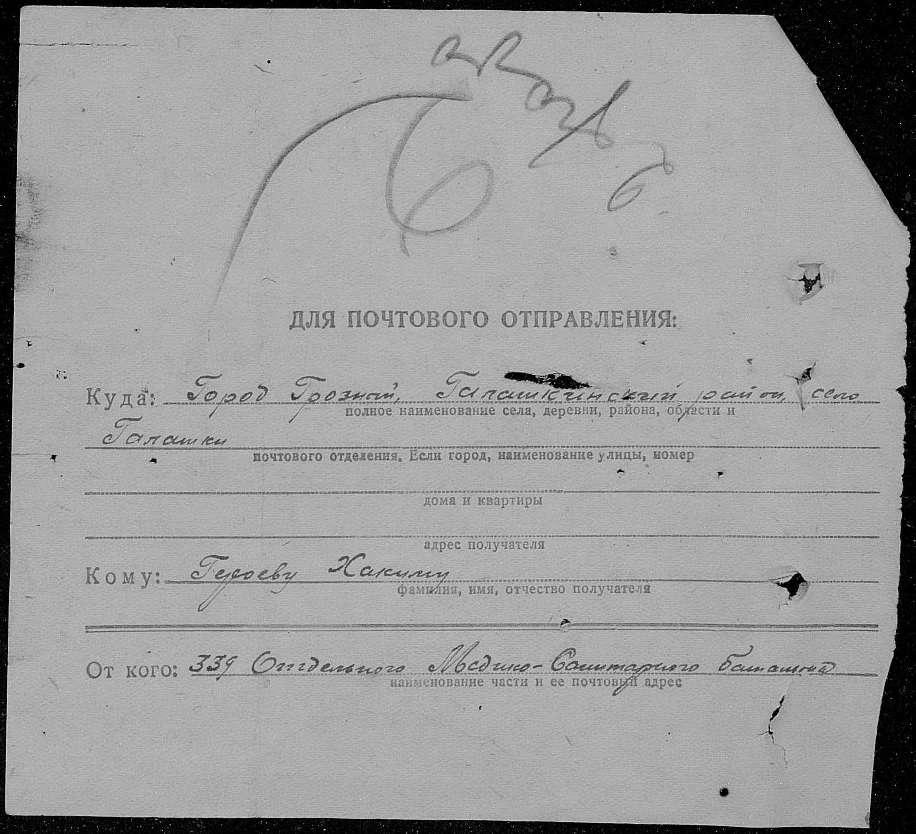 ДЛЯ ПОЧТОВОГО ОТПРАВЛЕНИЯ:
Куда: Город Грозный, Галашкинский район, село
полное наименование села, деревни, района, области и
Галашки
почтового отделения. Если город, наименование улицы, номер
дома и квартиры
адрес получателя
Кому: Хакиму
фамилия, имя, отчество получателя
От кого: 339 Отдельного Медико-Санитарного баталиона
наименование части и ее почтовый адрес